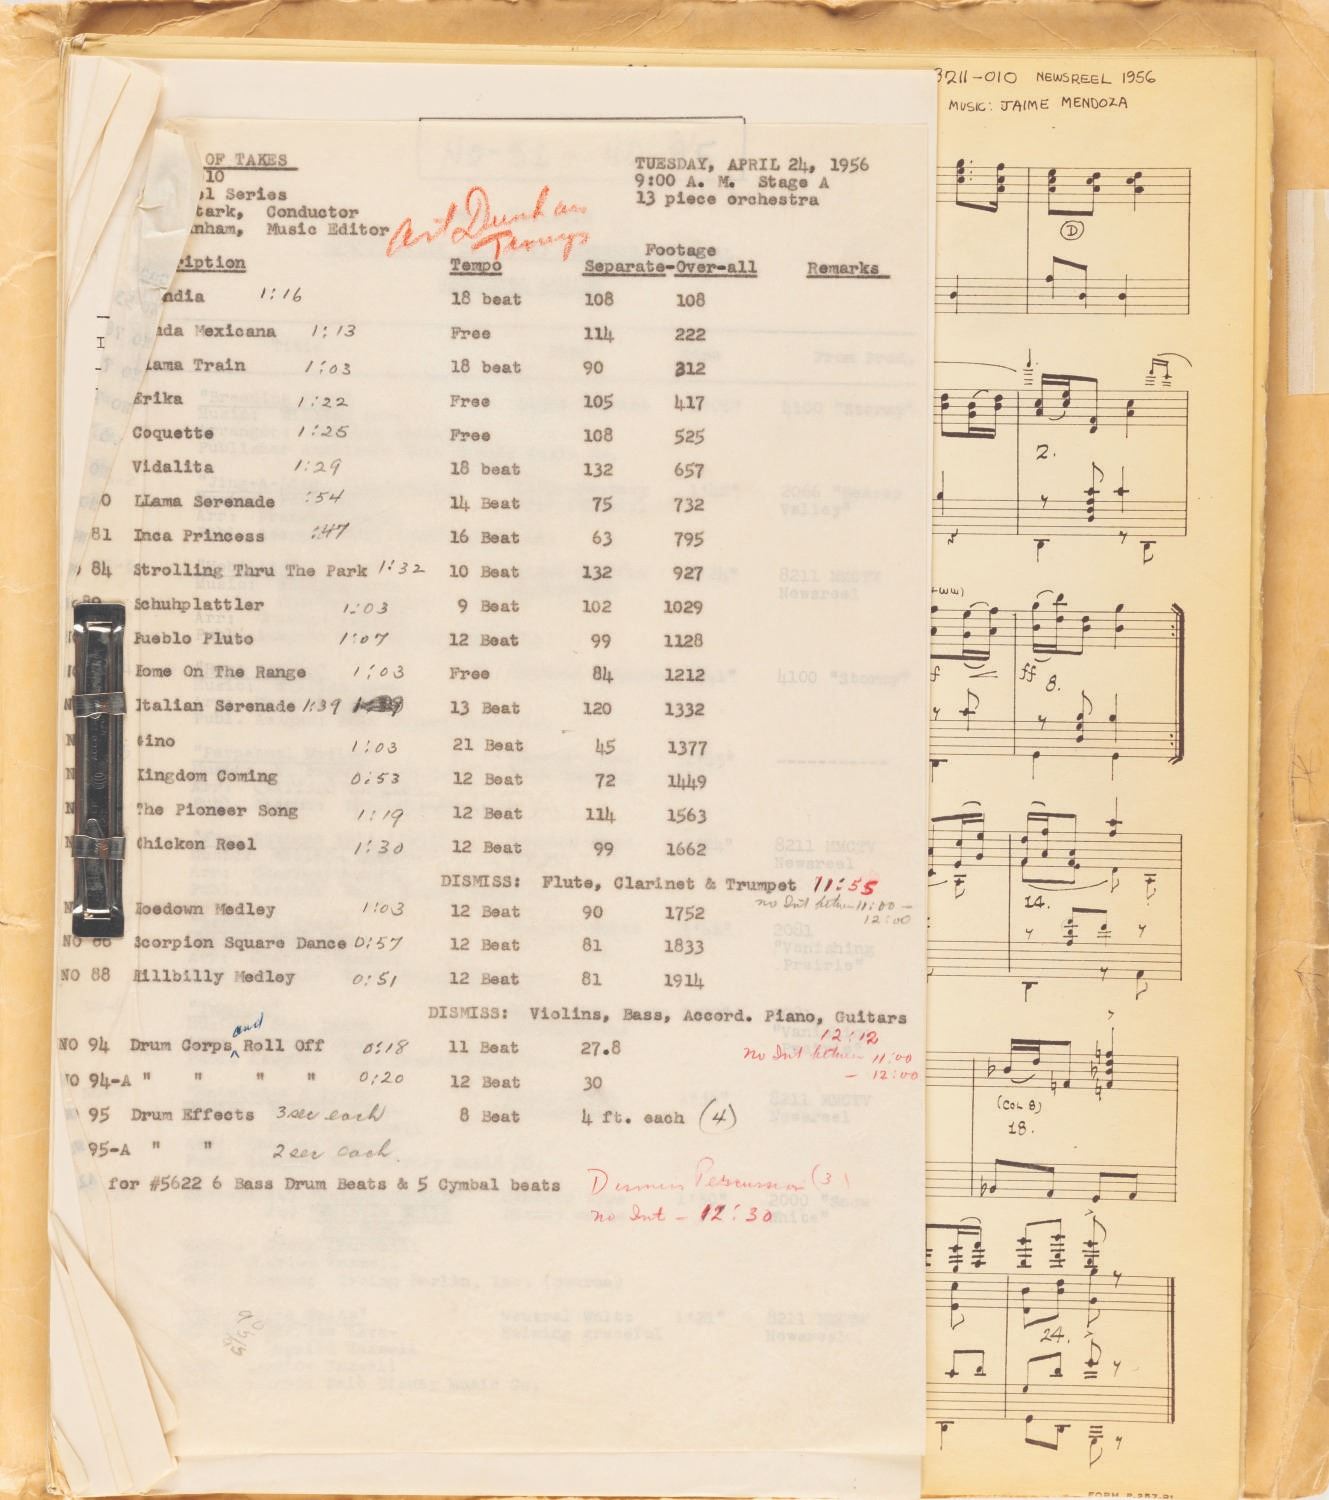 OF TAKES
10
l Series
tark, Conductor
nham, Music Editor
Art Dunham
TUESDAY, APRIL 24, 1956
9:00 A. M. Stage A
13 piece orchestra
3211-010 NEWSREEL 1956
MUSIC: JAIME MENDOZA
Footage
ription Tempo Separate-Over-all Remarks
ndia 1:16 18 beat 108 108
ada Mexicana 1:13 Free 114 222
lama Train 1:03 18 beat 90 312
Erika 1:22 Free 105 417
Coquette 1:25 Free 108 525
Vidalita 1:29 18 beat 132 657
0 LLama Serenade :54 14 Beat 75 732
81 Inca Princess :47 16 Beat 63 795
84 Strolling Thru The Park 1:32 10 Beat 132 927
89 Schuhplattler 1:03 9 Beat 102 1029
Pueblo Pluto 1:07 12 Beat 99 1128
Home On The Range 1:03 Free 84 1212
Italian Serenade 1:39 13 Beat 120 1332
Gino 1:03 21 Beat 45 1377
Kingdom Coming 0:53 12 Beat 72 1449
The Pioneer Song 1:19 12 Beat 114 1563
Chicken Reel 1:30 12 Beat 99 1662
DISMISS: Flute, Clarinet & Trumpet 11:55
no Int between 11:00 -
12:00
Hoedown Medley 1:03 12 Beat 90 1752
NO 86 Scorpion Square Dance 0:57 12 Beat 81 1833
NO 88 Hillbilly Medley 0:51 12 Beat 81 1914
DISMISS: Violins, Bass, Accord. Piano, Guitars
12:12
no Int between 11:00
- 12:00
NO 94 Drum Corps and Roll Off 0:18 11 Beat 27.8
NO 94-A " " " " 0:20 12 Beat 30
95 Drum Effects 3 sec each 8 Beat 4 ft. each (4)
95-A " " 2 sec each.
for #5622 6 Bass Drum Beats & 5 Cymbal beats
Dismiss Percussion (3)
no Int - 12:30
D
2.
+WW)
ff
8.
14.
(COL 8)
18.
24.